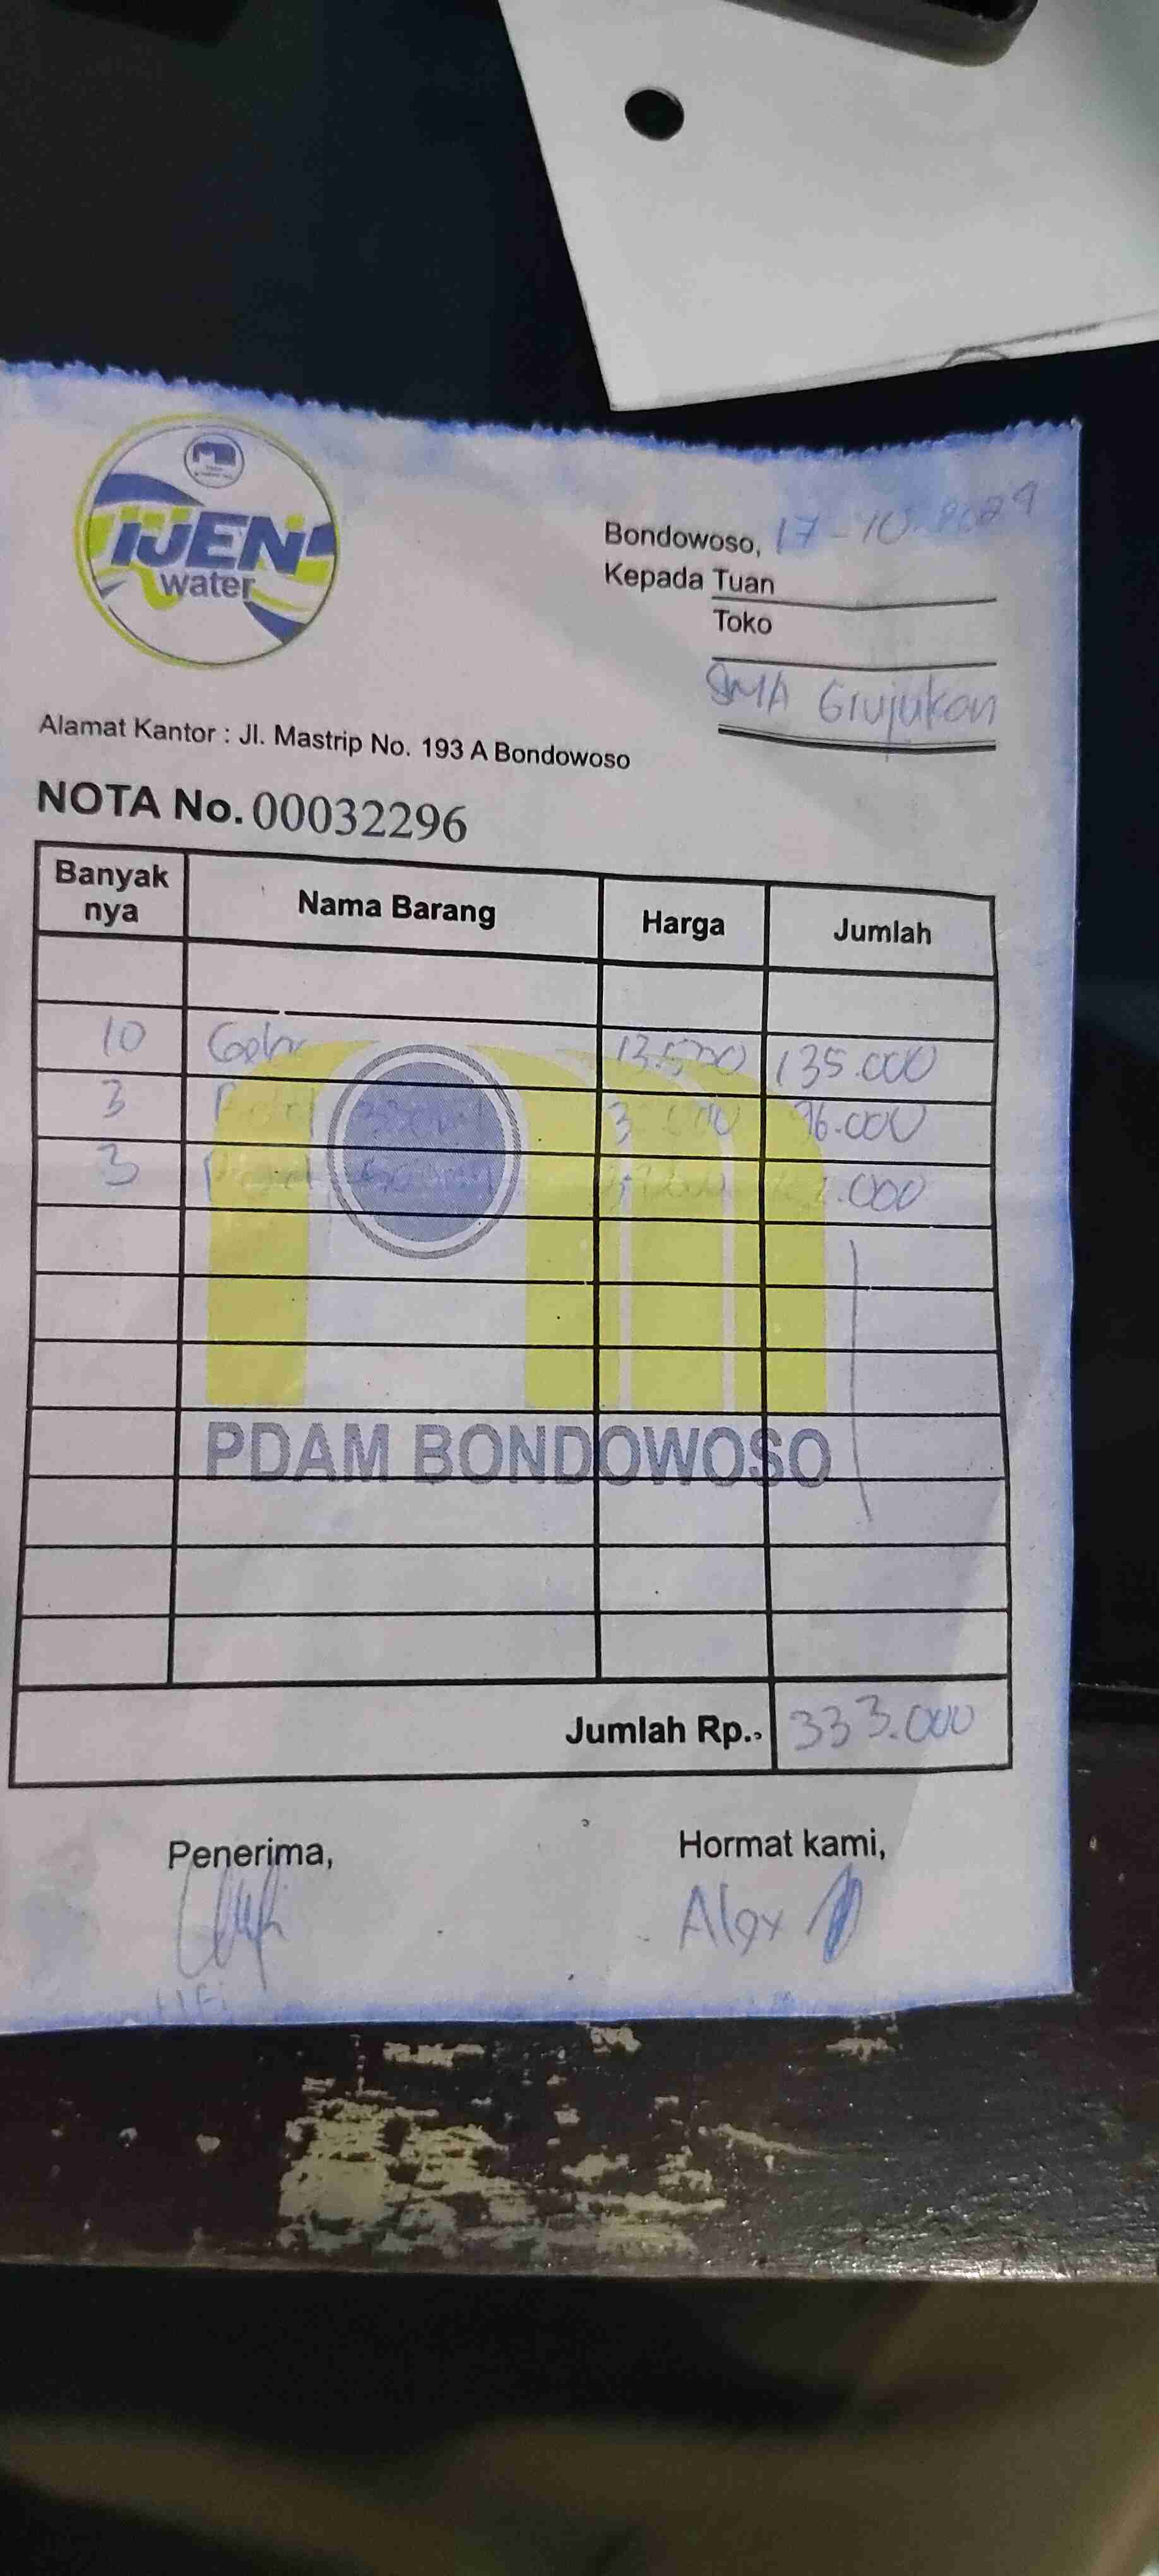 IJEN
water
Bondowoso, 17-10-2024
Kepada Tuan
Toko
SMA Grujukan
Alamat Kantor : Jl. Mastrip No. 193 A Bondowoso
NOTA No. 00032296
Banyak nya Nama Barang Harga Jumlah
10 Gelas 13.500 135.000
3 330 ml 96.000
3 500 ml .000
PDAM BONDOWOSO
Jumlah Rp., 333.000
Penerima, Hormat kami,
Alex